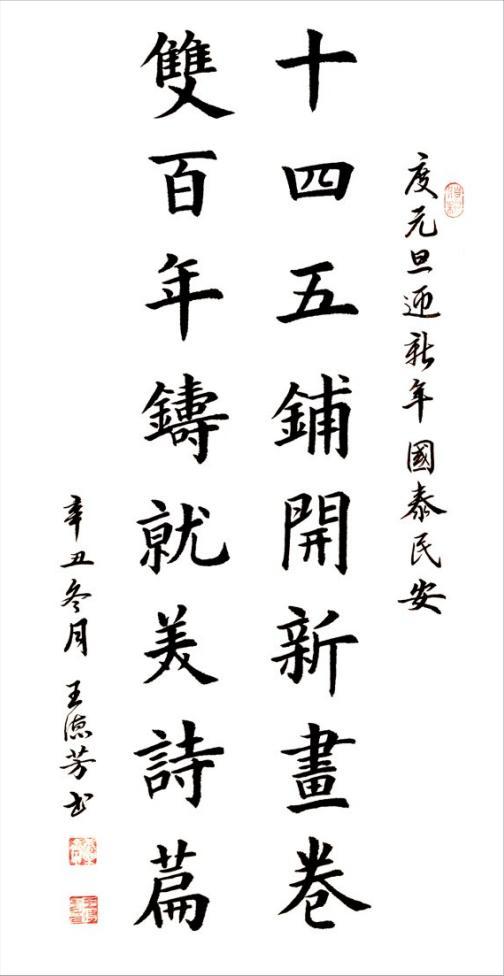 度元旦迎新年國泰民安
十四五鋪開新畫卷
雙百年鑄就美詩篇
辛丑冬月王德芳书